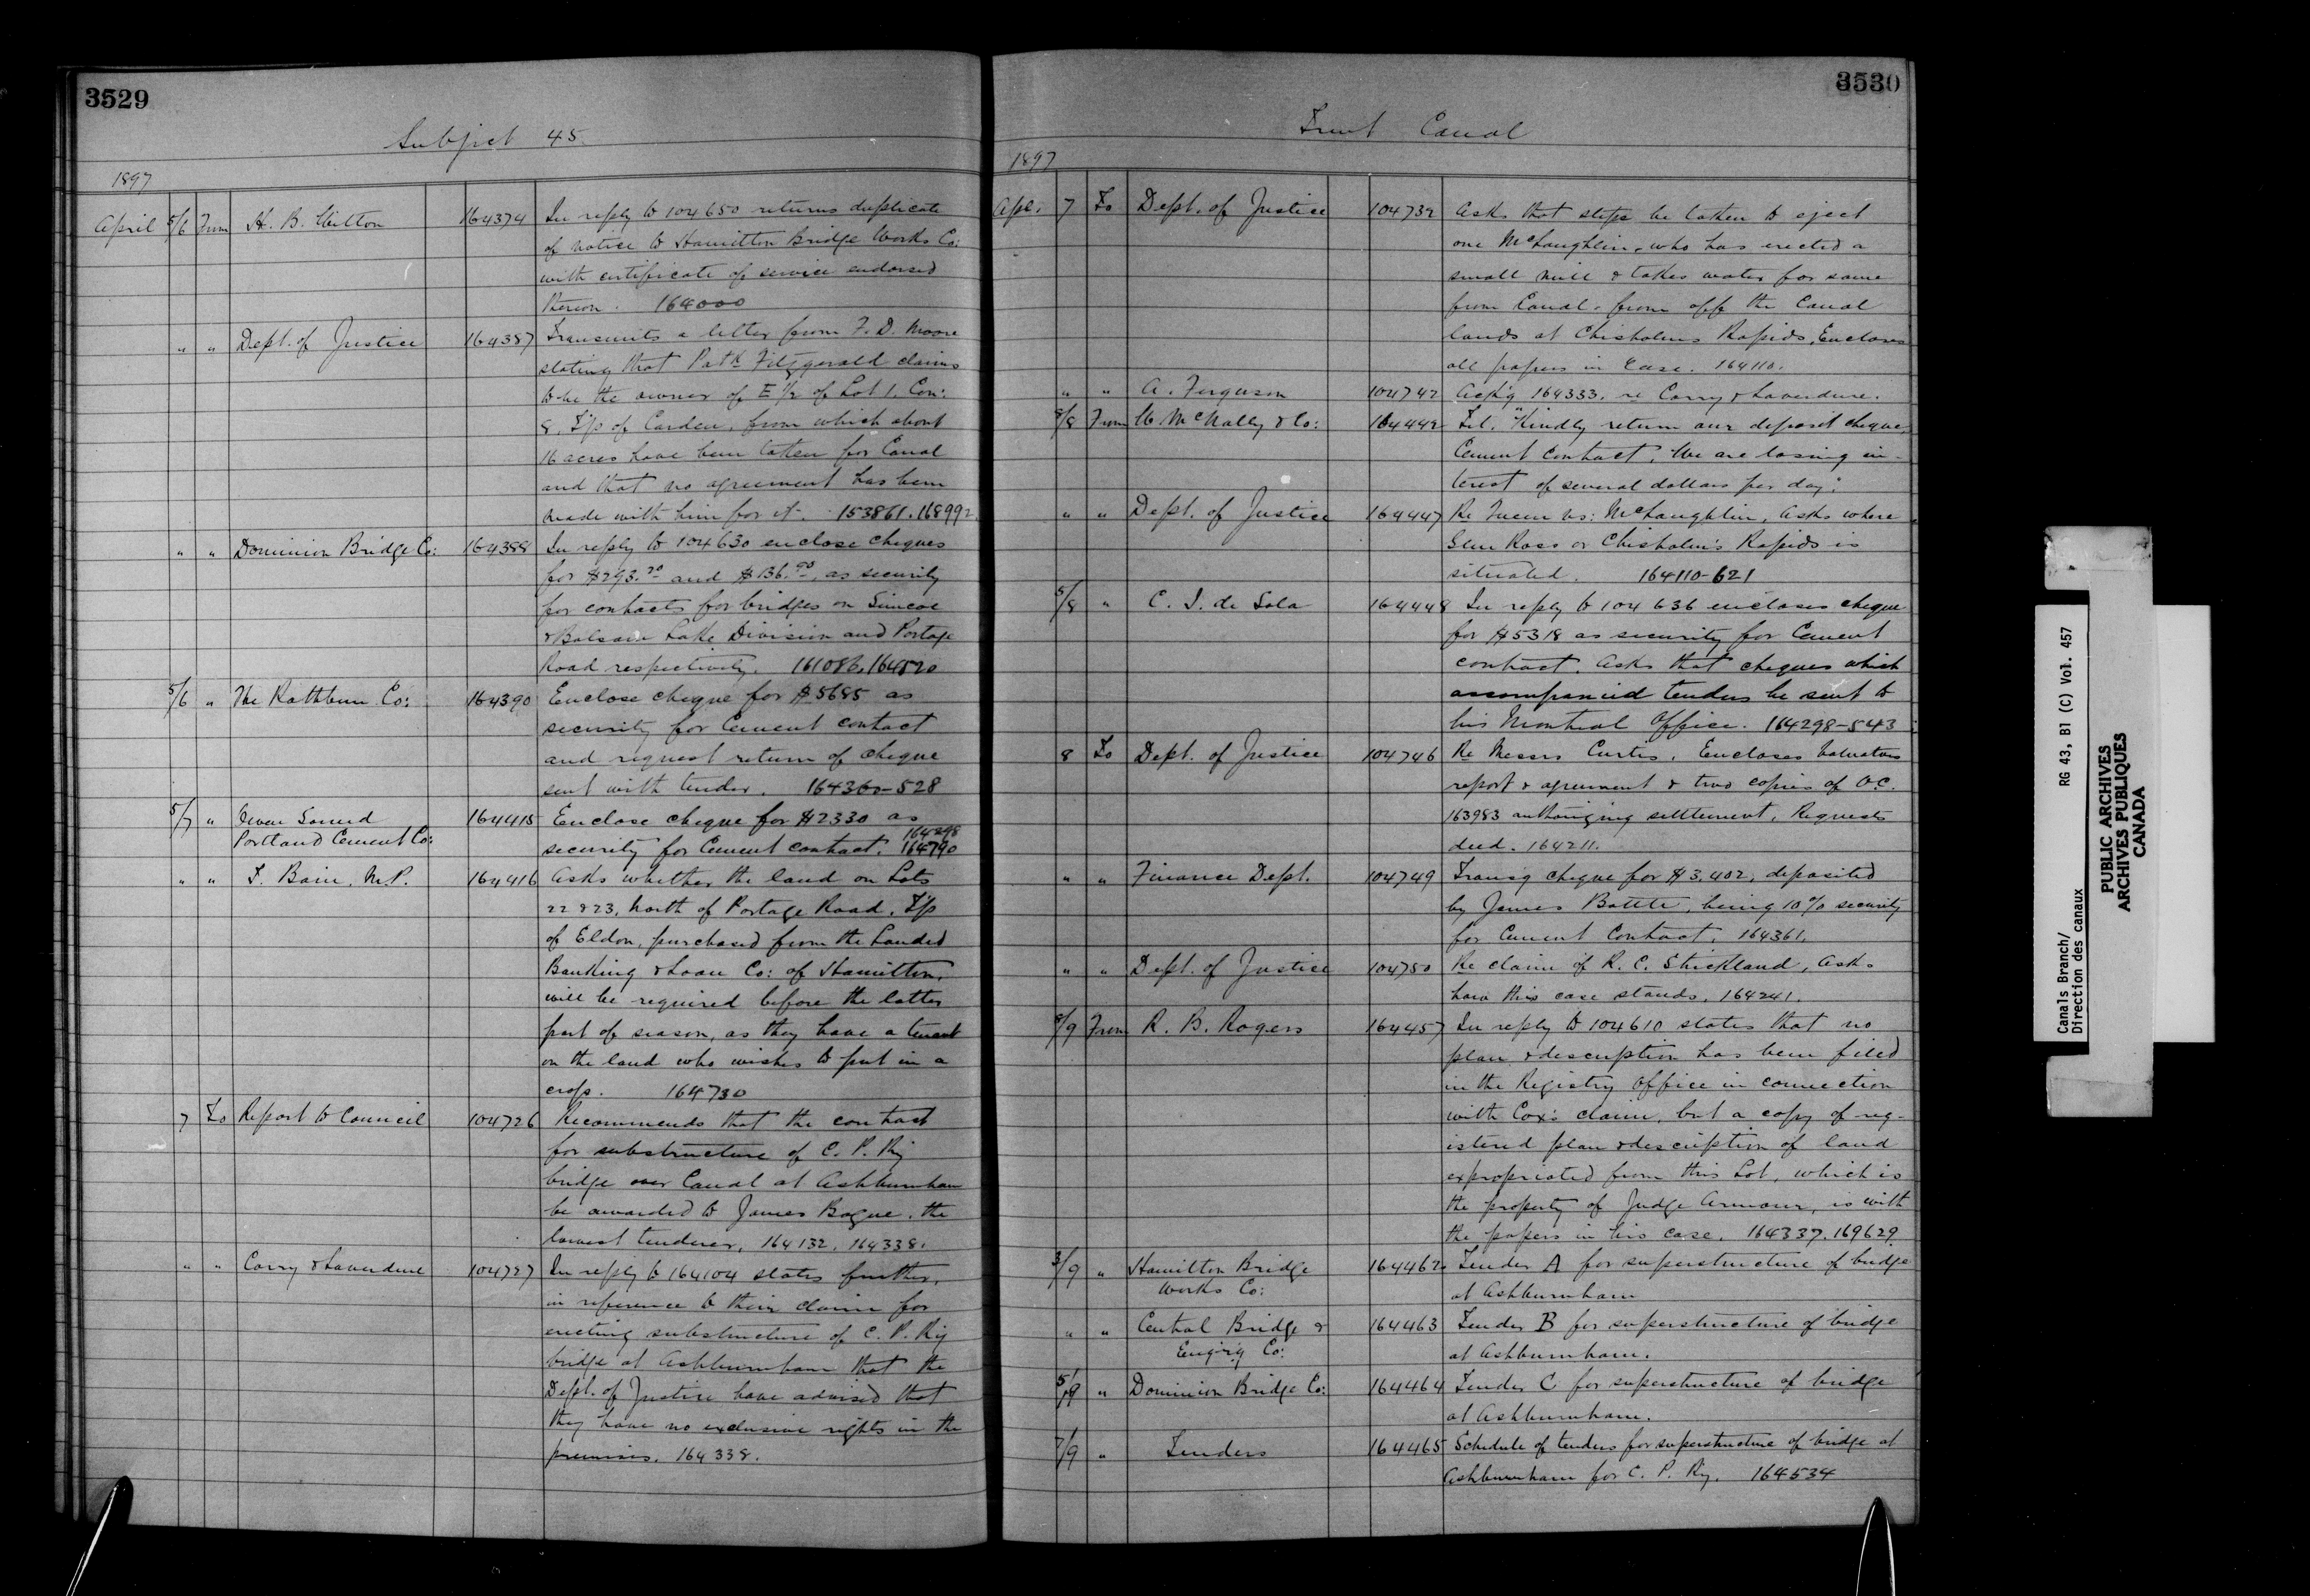 3529
Subject 45
1897
April 5/6 From H. B. Witton 164374 In reply to 104650 returns duplicate
of notice to Hamilton Bridge Works Co:
with certificate of service endorsed
thereon. 164000
" " Dept. of Justice 164387 Transmits a letter from F. D. Moore
stating that Patk Fitzgerald claims
to be the owner of E 1/2 of Lot 1, Con:
8, T'p of Carden, from which about
16 acres have been taken for Canal
and that no agreement has been
made with him for it. 153861. 168992
" " Dominion Bridge Co: 164388 In reply to 104630 enclose cheques
for $293.70 and $136.90, as security
for contracts for bridges on Simcoe
& Balsam Lake Division and Portage
Road respectively. 161086, 164520
5/6 " The Rathbun Co: 164390 Enclose cheque for $5685 as
security for Cement contract
and request return of cheque
sent with tender. 164360-528
5/7 " Owen Sound 164415 Enclose cheque for $2330 as
Portland Cement Co: security for Cement contract. 164298 164790
" " T. Bain, M.P. 164416 Asks whether the land on Lots
22 & 23, North of Portage Road, T'p
of Eldon, purchased from the Landed
Banking & Loan Co: of Hamilton,
will be required before the latter
part of season, as they have a tenant
on the land who wishes to put in a
crop. 164730
7 To Report to Council 104726 Recommends that the contract
for substructure of C. P. Ry
bridge over Canal at Ashburnham
be awarded to James Bogue, the
lowest tenderer. 164132. 164338.
" " Corry & Laverdure 104727 In reply to 164104 states further,
in reference to their claim for
erecting substructure of C. P. Ry
bridge at Ashburnham that the
Dept. of Justice have advised that
they have no exclusive rights in the
premises. 164338.
3530
Trent Canal
1897
Apl. 7 To Dept. of Justice 104732 Asks that steps be taken to eject
one McLaughlin, who has erected a
small mill & takes water for same
from Canal, from off the Canal
lands at Chisholms Rapids. Encloses
all papers in Case. 164110.
" " A. Ferguson 104742 Ack'g 164333, re Corry & Laverdure.
8/8 From W McNally & Co: 164442 Tel. "Kindly return our deposit cheque,
Cement Contract. We are losing in-
terest of several dollars per day."
" " Dept. of Justice 164447 Re Queen vs: McLaughlin, Asks where
Glen Ross or Chisholm's Rapids is
situated. 164110-621
5/8 " C. I. de Sola 164448 In reply to 104636 encloses cheque
for $5318 as security for Cement
contract. Asks that cheques which
accompanied tenders be sent to
his Montreal Office. 164298-543
8 To Dept. of Justice 104746 Re Messrs Curtis. Encloses Valuators
report & agreement & two copies of O.C.
163983 authorizing settlement. Requests
deed. 164211.
" " Finance Dept. 104749 Transg cheque for $3.402, deposited
by James Battle, being 10% security
for Cement Contract. 164361.
" " Dept. of Justice 104750 Re claim of R. C. Strickland, Asks
how this case stands. 164241.
8/9 From R. B. Rogers 164457 In reply to 104610 states that no
plan & description has been filed
in the Registry Office in connection
with Cox's claim, but a copy of reg-
istered plan & description of land
expropriated from this Lot, which is
the property of Judge Armour, is with
the papers in his case. 164337. 169629
3/9 " Hamilton Bridge 164462 Tender A for superstructure of bridge
Works Co: at Ashburnham
" " Central Bridge & 164463 Tender B for superstructure of bridge
Engin'g Co: at Ashburnham.
5/9 " Dominion Bridge Co: 164464 Tender C for superstructure of bridge
at Ashburnham.
7/9 " Tenders 164465 Schedule of tenders for superstructure of bridge at
Ashburnham for C. P. Ry. 164534
Canals Branch/ RG 43, B1 (C) Vol. 457
Direction des canaux
PUBLIC ARCHIVES
ARCHIVES PUBLIQUES
CANADA